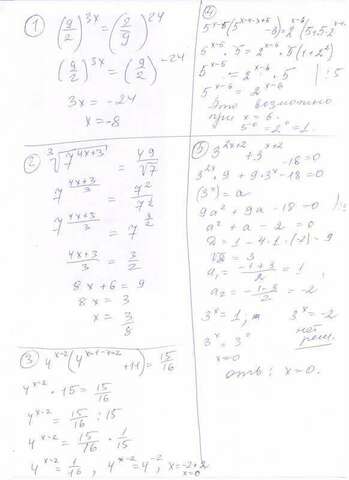 ①
(9/2)^3x = (2/9)^24
(9/2)^3x = (9/2)^-24
3x = -24
x = -8
②
³√7^4x+3 = 49/√7
7^(4x+3)/3 = 7²/7^1/2
7^(4x+3)/3 = 7^3/2
(4x+3)/3 = 3/2
8x + 6 = 9
8x = 3
x = 3/8
③ 4^x-2 (4^x-1-x+2 + 11) = 15/16
4^x-2 · 15 = 15/16
4^x-2 = 15/16 : 15
4^x-2 = 15/16 · 1/15
4^x-2 = 1/16, 4^x-2 = 4^-2, x = -2+2
x=0
④
5^x-6 · 5 = 2^x-6 · 5(1+2²)
5^x-6 = 2^x-6 · 5 | :5
5^x-6 = 2^x-6
Это возможно
при x = 6.
5^0 = 2^0 = 1.
⑤ 3^2x+2 + 3^x+2 - 18 = 0
3^2x · 9 + 9 · 3^x - 18 = 0
(3^x) = a
9a² + 9a - 18 = 0
a² + a - 2 = 0
D = 1 - 4 · 1 · (-2) = 9
√D = 3
a₁ = (-1+3)/2 = 1
a₂ = (-1-3)/2 = -2
3^x = 1, 3^x = -2
3^x = 3^0 нет
x=0 реш.
отв: x=0.